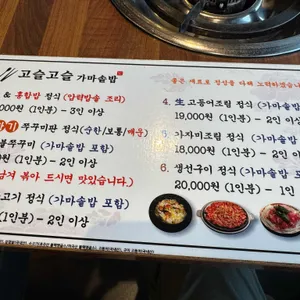 고슬고슬 가마솥밥
좋은 재료로 정성을 다해 노력하겠습니다
& 홍합밥 정식 (압력밥솥 조리)
000원 (1인분) - 3인 이상
쭈꾸미판 정식 (순한/보통/매운)
쭈꾸미 (가마솥밥 포함)
원 (1인분) - 2인 이상
남겨 볶아 드시면 맛있습니다.)
고기 정식 (가마솥밥 포함)
(1인분) - 2인 이상
4. 生 고등어조림 정식 (가마솥밥
19,000원 (1인분) - 2인
5. 가자미조림 정식 (가마솥밥
18,000원 (1인분) - 2인 이
6. 생선구이 정식 (가마솥밥 포
20,000원 (1인분) - 1인